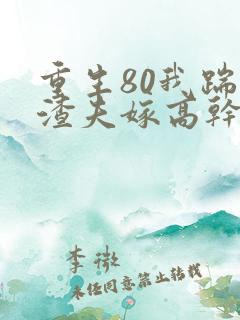 重生80我踹
渣夫嫁高幹
李微
未经同意禁止转载